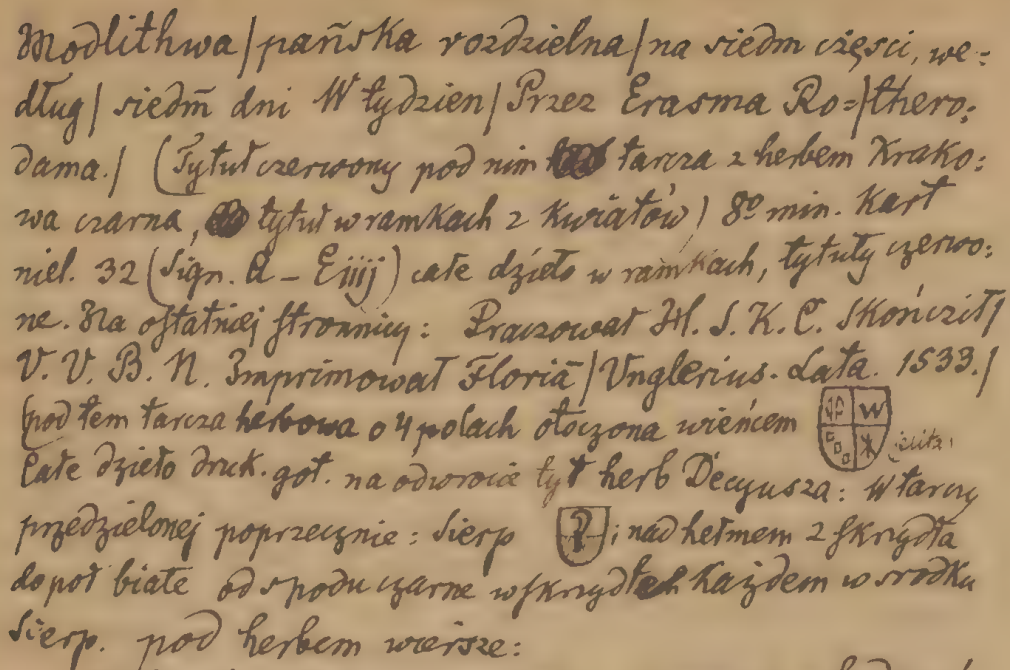 Modlithwa/pańska rozdzielna/na siedm części, we=
dług/ siedm̄ dni W tydzien/Przez Erasma Ro=/thero=
dama./ (Tytuł czerwony pod nim tarcza z herbem Krako=
wa czarna, tytuł w ramkach z kwiatów) 8º min. Kart
niel. 32 (Sign. A – Eiiij) całe dzieło w ramkach, tytuły czerwo=
ne. Na ostatniej stronnicy: Praczował H. S. K. C. Skończił/
V. V. B. N. Imprimował Floriā/Vnglerius. Lata. 1533./
(pod tem tarcza herbowa o 4 polach otoczona wieńcem W
Całe dzieło druk. got. na odwrocie tyt herb Decyusza: w tarczy
przedzielonej poprzecznie: Sierp ; nad hełmem 2 skrzydła
do poł białe od spodu czarne w skrzydłeh każdem w srodku
Sierp. pod herbem wiersze: